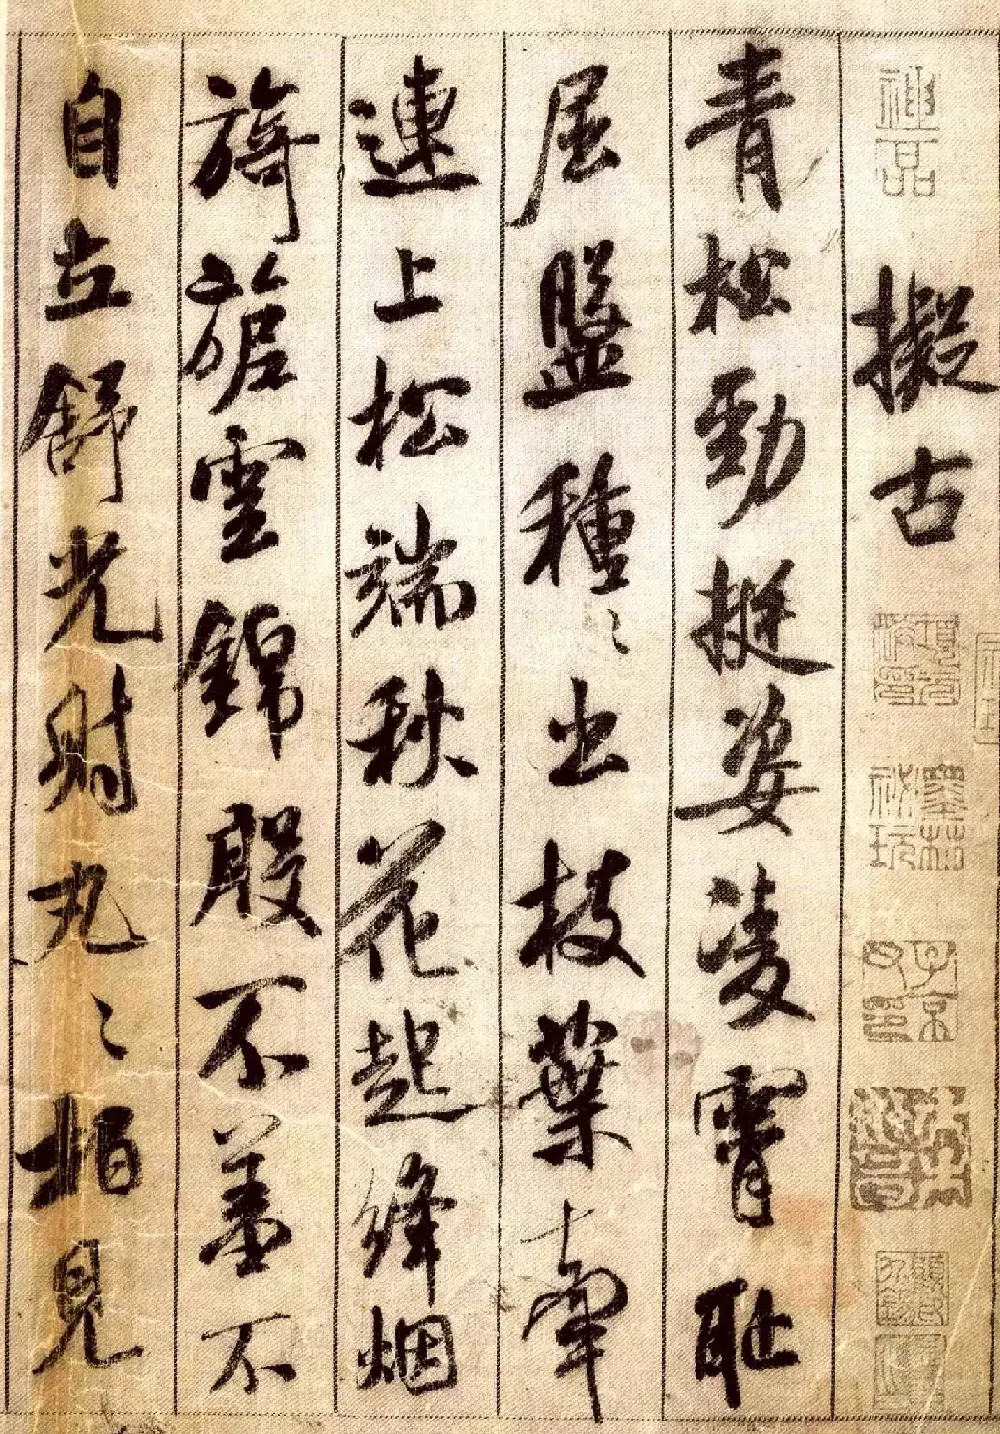 神品
擬古
墨林祕玩
子京父印
青松勁挺姿凌霄恥
屈盤種〻出枝葉牽
連上松端秋花起絳烟
旖旎雲錦殷不羞不
自立舒光射丸〻柏見